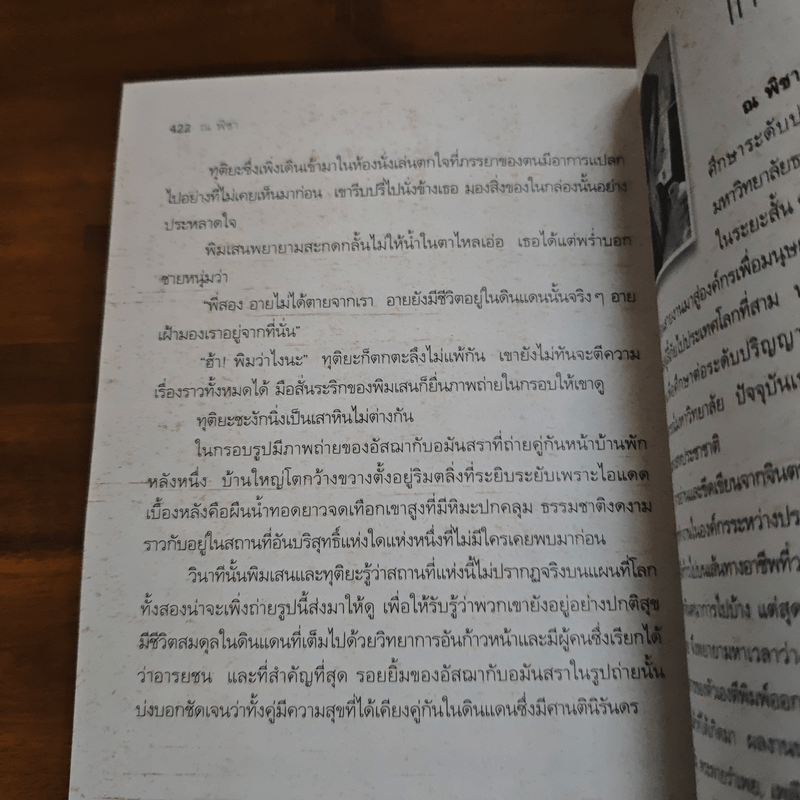 422 ณ พิชา
ทุติยะซึ่งเพิ่งเดินเข้ามาในห้องนั่งเล่นตกใจที่ภรรยาของตนมีอาการแปลก
ไปอย่างที่ไม่เคยเห็นมาก่อน เขารีบปรี่ไปนั่งข้างเธอ มองสิ่งของในกล่องนั้นอย่าง
ประหลาดใจ
พิมเสนพยายามสะกดกลั้นไม่ให้น้ำในตาไหลเอ่อ เธอได้แต่พร่ำบอก
ชายหนุ่มว่า
“พี่สอง อายไม่ได้ตายจากเรา อายยังมีชีวิตอยู่ในดินแดนนั้นจริงๆ อาย
เฝ้ามองเราอยู่จากที่นั่น”
“ฮ้า! พิมว่าไงนะ” ทุติยะก็ตกตะลึงไม่แพ้กัน เขายังไม่ทันจะตีความ
เรื่องราวทั้งหมดได้ มือสั่นระริกของพิมเสนก็ยื่นภาพถ่ายในกรอบให้เขาดู
ทุติยะชะงักนิ่งเป็นเสาหินไม่ต่างกัน
ในกรอบรูปมีภาพถ่ายของอัสฌากับอมันสราที่ถ่ายคู่กันหน้าบ้านพัก
หลังหนึ่ง บ้านใหญ่โตกว้างขวางตั้งอยู่ริมตลิ่งที่ระยิบระยับเพราะไอแดด
เบื้องหลังคือผืนน้ำทอดยาวจดเทือกเขาสูงที่มีหิมะปกคลุม ธรรมชาติงดงาม
ราวกับอยู่ในสถานที่อันบริสุทธิ์แห่งใดแห่งหนึ่งที่ไม่มีใครเคยพบมาก่อน
วินาทีนั้นพิมเสนและทุติยะรู้ว่าสถานที่แห่งนี้ไม่ปรากฏจริงบนแผนที่โลก
ทั้งสองน่าจะเพิ่งถ่ายรูปนี้ส่งมาให้ดู เพื่อให้รับรู้ว่าพวกเขายังอยู่อย่างปกติสุข
มีชีวิตสมดุลในดินแดนที่เต็มไปด้วยวิทยาการอันก้าวหน้าและมีผู้คนซึ่งเรียกได้
ว่าอารยชน และที่สำคัญที่สุด รอยยิ้มของอัสฌากับอมันสราในรูปถ่ายนั้น
บ่งบอกชัดเจนว่าทั้งคู่มีความสุขที่ได้เคียงคู่กันในดินแดนซึ่งมีศานตินิรันดร
ณ พิชา
ศึกษาระดับ
มหาวิทยาลัย
ในระยะสั้น
องค์กรเพื่อ
ไปประเทศโลกที่สาม
ศึกษาต่อระดับปริญญา
มหาวิทยาลัย ปัจจุบัน
ประชาชาติ
และขีดเขียนจาก
องค์กรระหว่าง
บนเส้นทางอาชีพที่
การไปบ้าง แต่สุด
พยายามหาเวลา
ของตัวเองตีพิมพ์ออก
ให้เกิดมา